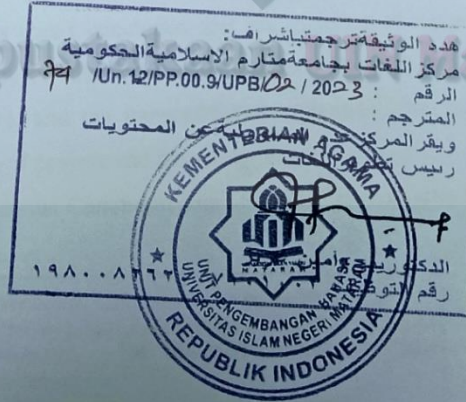 هدد الوثيقة ترجمت باشراف:
مركز اللغات بجامعة متارم الاسلامية الحكومية
الرقم : /Un.12/PP.00.9/UPB/02 / 2023
المترجم :
ويقر المركز عن المحتويات
رييس
الدكتور
رقم
KEMENTERIAN AGAMA
MATARAM
UNIT PENGEMBANGAN BAHASA
UNIVERSITAS ISLAM NEGERI MATARAM
REPUBLIK INDONESIA